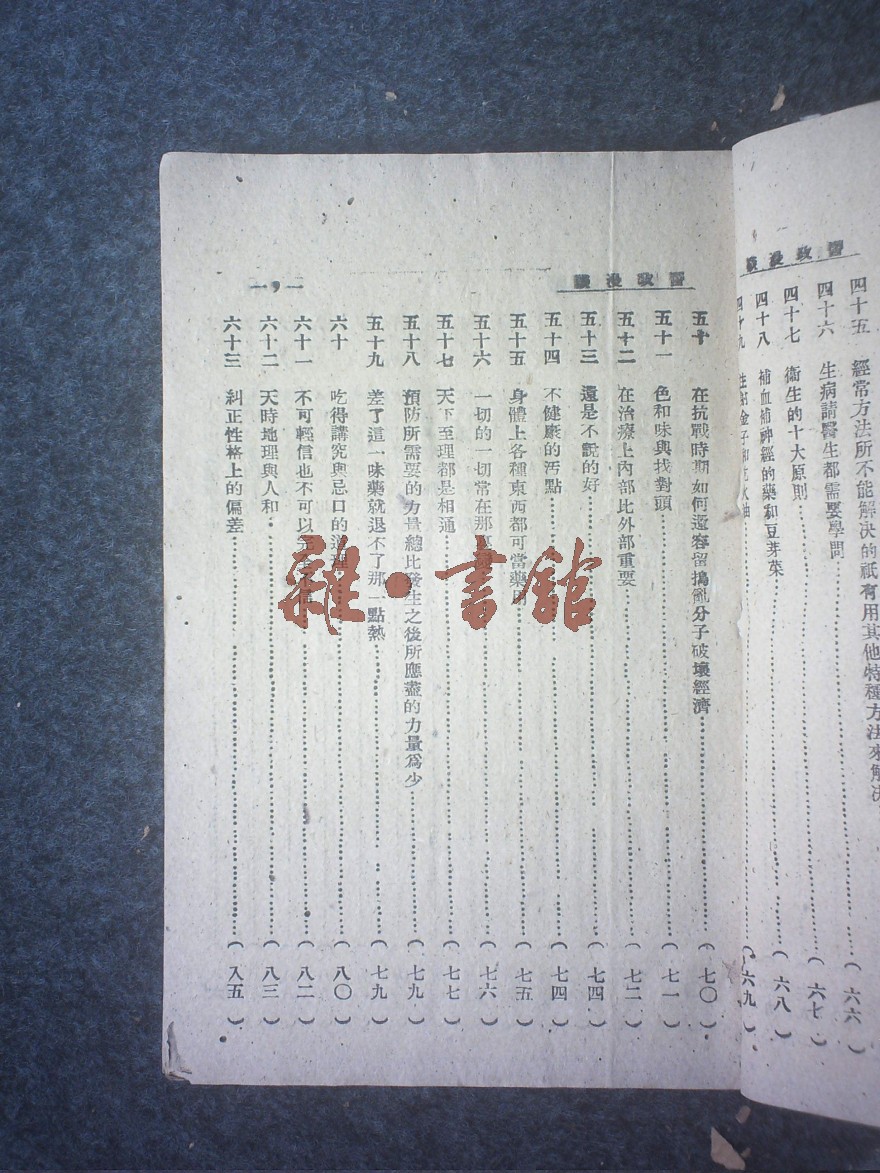 醫政漫談
四十五 經常方法所不能解決的祇有用其他特種方法來解決
四十六 生病請醫生都需要學問(六六)
四十七 衞生的十大原則(六七)
四十八 補血補神經的藥和豆芽菜(六八)
四十九(六九)
醫政漫談
二，一
五十 在抗戰時期如何還容留搗亂分子破壞經濟(七〇)
五十一 色和味與找對頭(七一)
五十二 在治療上內部比外部重要(七二)
五十三 還是不謊的好(七四)
五十四 不健康的汚點(七四)
五十五 身體上各種東西都可當藥用(七五)
五十六 一切的一切常在那(七六)
五十七 天下至理都是相通(七七)
五十八 預防所需要的力量總比發生之後所應盡的力量爲少(七九)
五十九 差了這一味藥就退不了那一點熱(七九)
六十 吃得講究與忌口的道理(八〇)
六十一 不可輕信也不可以(八二)
六十二 天時地理與人和(八三)
六十三 糾正性格上的偏差(八五)
雜·書館